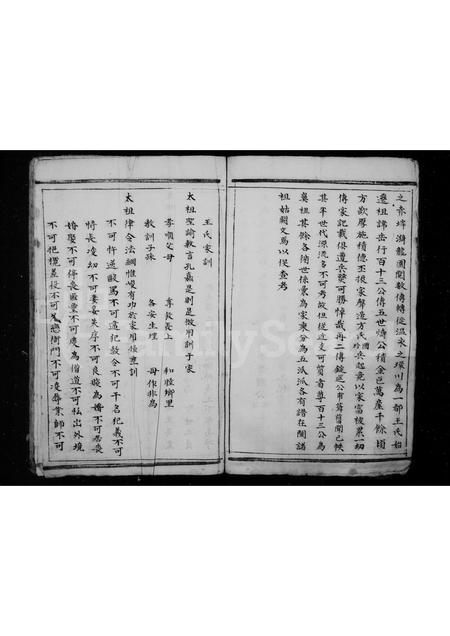 之赤坪游龍圖開數傳轉從溫水之環川為一部王氏始
遷祖諱岳行百十三公傳五世憐公積金邑萬產千餘頃
方歎厚施積德丕振家聲造方氏國珍兵起竟以家富被累一切
傳家記載俱遭兵燹可勝悼哉再二傳錠廷公市箕舊聞已帙
其年世代源流多不可考故但從近友可質者尊百十三公為
奠祖其餘各隨世係彙為家乘分為五派派各有譜在閱諸
祖姑闕文焉以俟查考
王氏家訓
太祖聖諭教言孔嘉是則是傚用訓于家
孝順父母 尊敬長上 和睦鄉里
教訓子孫 各安生理 毋作非為
太祖律令法綱惟嚴有功於家用條垂訓
不可忤逆毆罵不可違犯教令不可干名犯義不可
恃長凌幼不可妻妾失序不可良賤為婚不可居喪
婚娶不可停喪匿重不可度為僧道不可私出外境
不可把攬差役不可 戀衙門不可凌辱業師不可